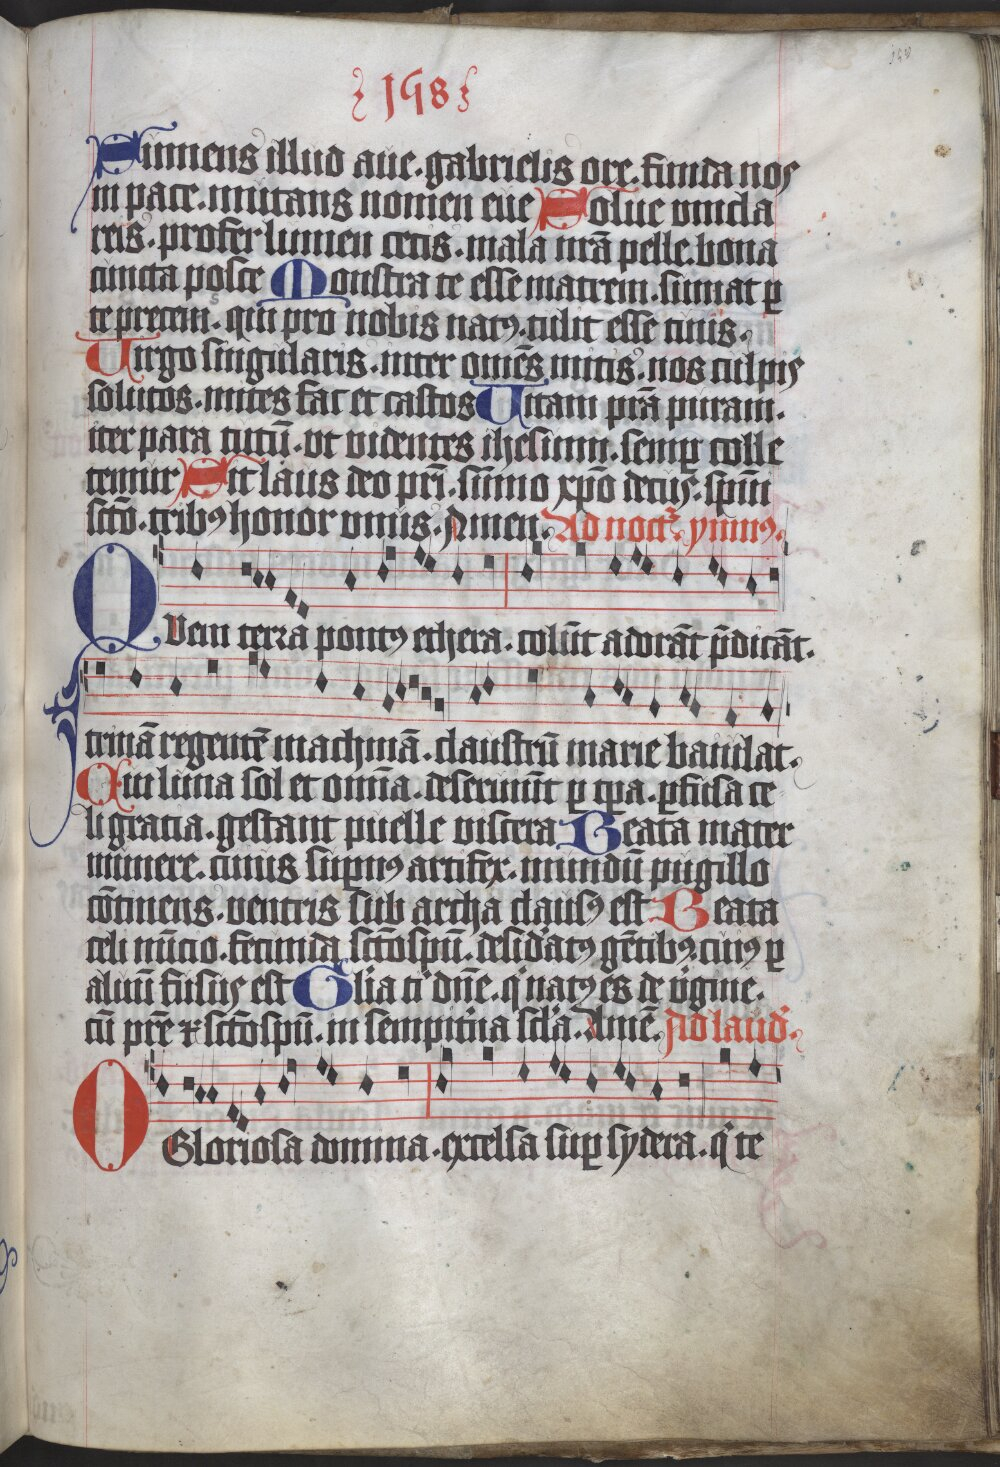 {158}
158
Sumens illud aue. gabrielis ore. funda nos
in pace. mutans nomen eue Solue vincla
reis. profer lumen cecis. mala nr̄a pelle. bona
cuncta posce Monstra te esse matrem. sumat ꝑ
te precem. qui pro nobis natꝰ. tulit esse tuus.
Uirgo singularis. inter om̄es mitis. nos culpis
solutos. mites fac et castos Uitam pr̄a puram.
iter para tutū. vt videntes ihesum. semꝑ colle
temur Sit laus deo pr̄i. sūmo xp̄o decus. sp̄ui
scō. tribꝰ honor vnus. Amen. Ad noct᷑. ymnꝰ.
QVem terra pontꝰ ethera. colūt adorāt p̄dicāt.
trinā regentē machinā. claustrū marie baiulat.
Cui luna sol et om̄ia. deseruiūt ꝑ tp̄a. ꝑfusa ce
li gracia. gestant puelle viscera Beata mater
munere. cuius suꝑnꝰ artifex. mundū pugillo
cōtinens. ventris sub archa clausꝰ est Beata
celi nūcio. fecunda sctōspū. desid'atꝰ gētibꝰ. cuiꝰ ꝑ
aluū fusus est Gl̄ia ti dn̄e. q' natꝰ es de v'gine.
cū pr̄e ⁊ sctōspū. in sempit'na scl'a. Amē. Ad laud'.
O Gloriosa domina. excelsa suꝑ sydera. q' te